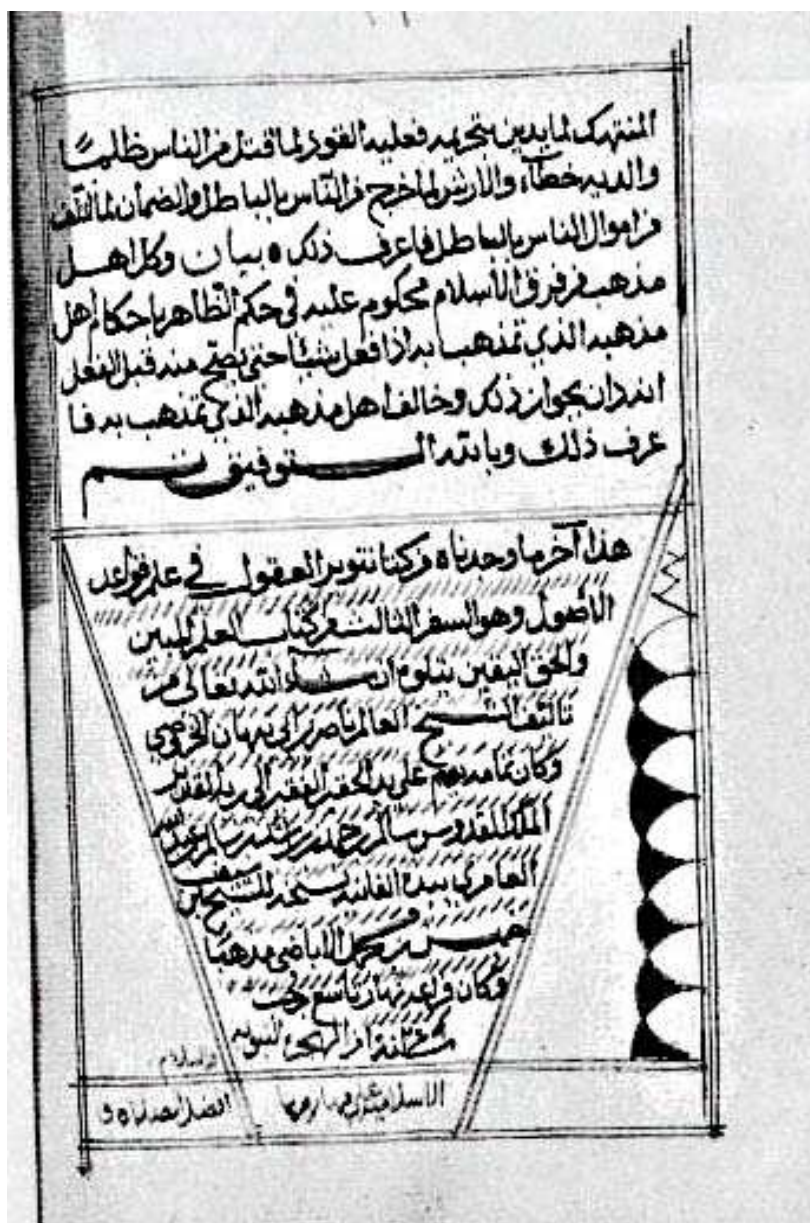 المنتهك لما يدين بتحريمه فعليه القود لما قتل من الناس ظلما
والديه خطآء والارش لما خرج من الناس بالباطل والضمان لما اتلف
من اموال الناس بالباطل فاعرف ذلك ه بيان وكل اهل
مذهب من فرق الأسلام محكوم عليه في حكم الظاهر باحكام اهل
مذهبه الذي تمذهب به اذا فعل شيئا حتى يصح منه قبل الفعل
انه دان بجواز ذلك وخالف اهل مذهبه الذي تمذهب به فا
عرف ذلك وبالله التوفيق تم
هذا آخر ما وجدناه من كتاب تنوير العقول في علم قواعد
الأصول وهو السفر الثالث من كتاب العلم المبين
والحق اليقين يتلوه ان شآء الله تعالى من
تأليف الشيخ العالم ناصر بن ابي نبهان الخروصي
وكان تمامه على يد الحقير الفقير الى ربه القدير
الملك القدوس سالم بن
العامري بيده الفانيه نسخه للشيخ
خميس الاباضي مذهبا
وكان فراغه نهار تاسع رجب
سنة من الهجرة النبويه
الاسلاميه على مهاجرها
افضل الصلاة و
والسلام